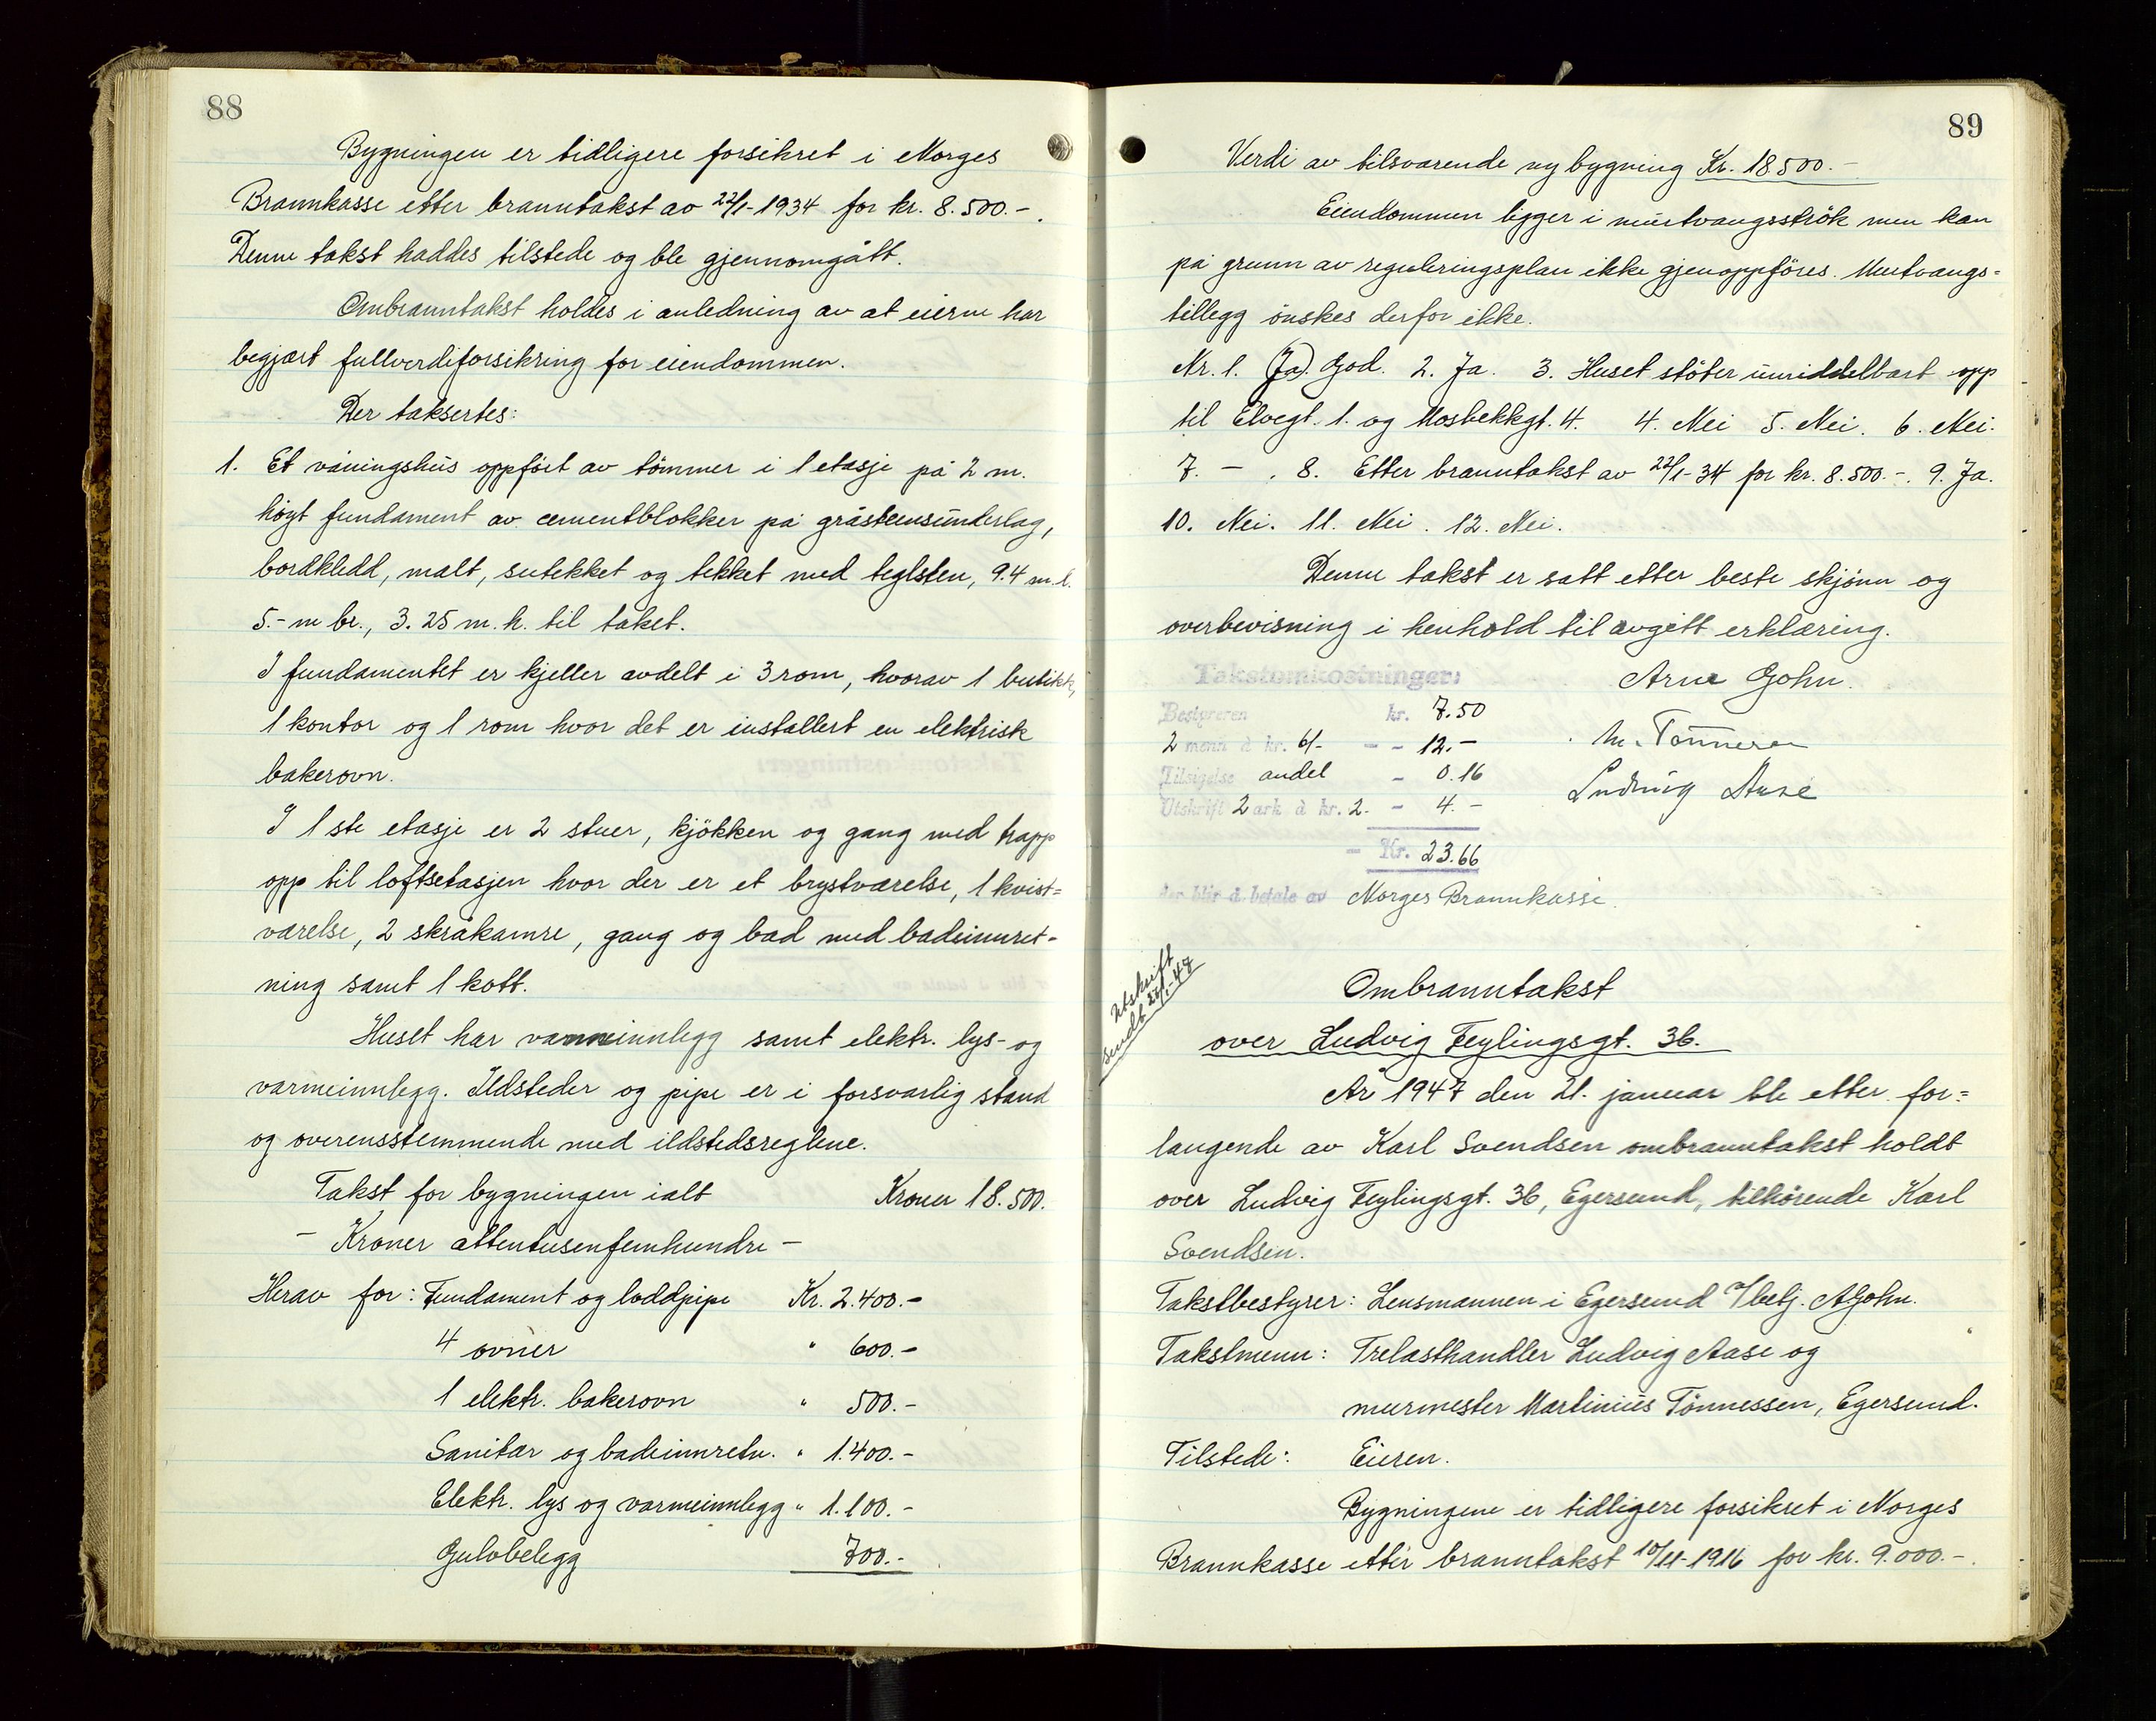 88
Bygningen er tidligere forsikret i Norges
Brannkasse etter branntakst av 22/1-1934 for kr. 8.500.-.
Denne takst haddes tilstede og ble gjennomgått.
Ombranntakst holdes i anledning av at eierne har
begjært fullverdiforsikring for eiendommen.
Der taksertes:
1. Et våningshus oppført av tømmer i 1 etasje på 2 m.
høyt fundament av cementblokker på gråsteinsunderlag,
bordkledd, malt, sutekket og tekket med teglsten, 9.4 m. l.
5.- m br., 3.25 m. h. til taket.
I fundamentet er kjeller avdelt i 3 rom, hvorav 1 butikk,
1 kontor og 1 rom hvor det er installert en elektrisk
bakerovn.
I 1ste etasje er 2 stuer, kjökken og gang med trapp
opp til loftsetasjen hvor der er et brystværelse, 1 kvist=
værelse, 2 skråkamre, gang og bad med badeinnret-
ning samt 1 kott.
Huset har vanninnlegg samt elektr. lys- og
varmeinnlegg. Ildsteder og pipe er i forsvarlig stand
og overensstemmende med ildstedsreglene.
Takst for bygningen ialt Kroner 18.500.
- Kroner attentusenfemhundre -
Herav for: Fundament og loddpipe Kr. 2.400.-
4 ovner " 600.-
1 elektr. bakerovn " 500.-
Sanitær og badeinnretn. " 1.400.-
Elektr. lys og varmeinnlegg " 1.100.-
Gulvbelegg 700.-
89
Verdi av tilsvarende ny bygning Kr. 18.500.-
Eiendommen ligger i murtvangsströk men kan
på grunn av reguleringsplan ikke gjenoppföres. Murtvangs=
tillegg önskes derfor ikke.
Nr. 1. (Ja). God. 2. Ja. 3. Huset stöter umiddelbart opp
til Elvegt. 1. og Mosbekkgt. 4. 4. Nei 5. Nei. 6. Nei.
7. - . 8. Etter branntakst av 22/1-34 for kr. 8.500.-. 9. Ja.
10. Nei. 11. Nei. 12. Nei.
Denne takst er satt etter beste skjönn og
overbevisning i henhold til avgitt erklæring.
Takstomkostninger:
Arne Gohn.
Bestyreren kr. 7.50
M. Tönnesen
2 menn à kr. 6/- - - 12.-
Tilsigelse andel - 0.16
Ludvig Aase
Utskrift 2 ark à kr. 2. - 4.-
- Kr. 23.66
der blir å betale av Norges Brannkasse.
Utskrift
sendt 22/1-47
Ombranntakst
over Ludvig Feylingsgt. 36.
År 1947 den 21. januar ble etter for=
langende av Karl Svendsen ombranntakst holdt
over Ludvig Feylingsgt. 36, Egersund, tilhörende Karl
Svendsen.
Takstbestyrer: Lensmannen i Egersund v/betj. A Gohn.
Takstmenn: Trelasthandler Ludvig Aase og
murmester Martinius Tönnessen, Egersund.
Tilstede: Eieren.
Bygningene er tidligere forsikret i Norges
Brannkasse etter branntakst 10/11-1916 for kr. 9.000.-.